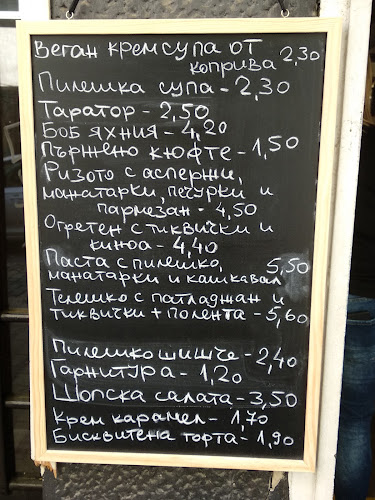 Веган крем супа от
коприва 2,30
Пилешка супа - 2,30
Таратор - 2,50
Боб яхния - 4,20
Пържено кюфте - 1,50
Ризото с аспержи,
манатарки, печурки и
пармезан - 4,50
Огретен с тиквички и
киноа - 4,40
Паста с пилешко, 5,50
манатарки и кашкавал
Телешко с патладжан и
тиквички + полента - 5,60
Пилешко шишче - 2,40
Гарнитура - 1,20
Шопска салата - 3,50
Крем карамел - 1,70
Бисквитена торта - 1,90